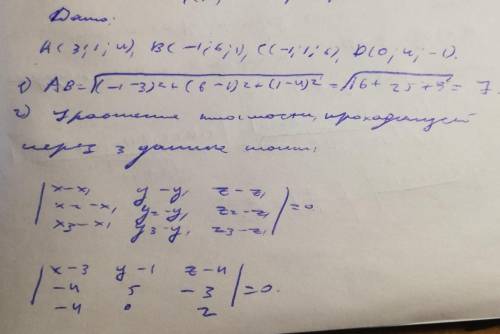 Дано:
A(3;1;4), B(-1;6;1), C(-1;1;6), D(0;4;-1).
1) AB=√((-1-3)²+(6-1)²+(1-4)²)=√(16+25+9)=7.
2) Уравнение плоскости, проходящей
через 3 данные точки:
|x-x₁ y-y₁ z-z₁|
|x₂-x₁ y₂-y₁ z₂-z₁|=0
|x₃-x₁ y₃-y₁ z₃-z₁|
|x-3 y-1 z-4|
|-4 5 -3|=0.
|-4 0 2|